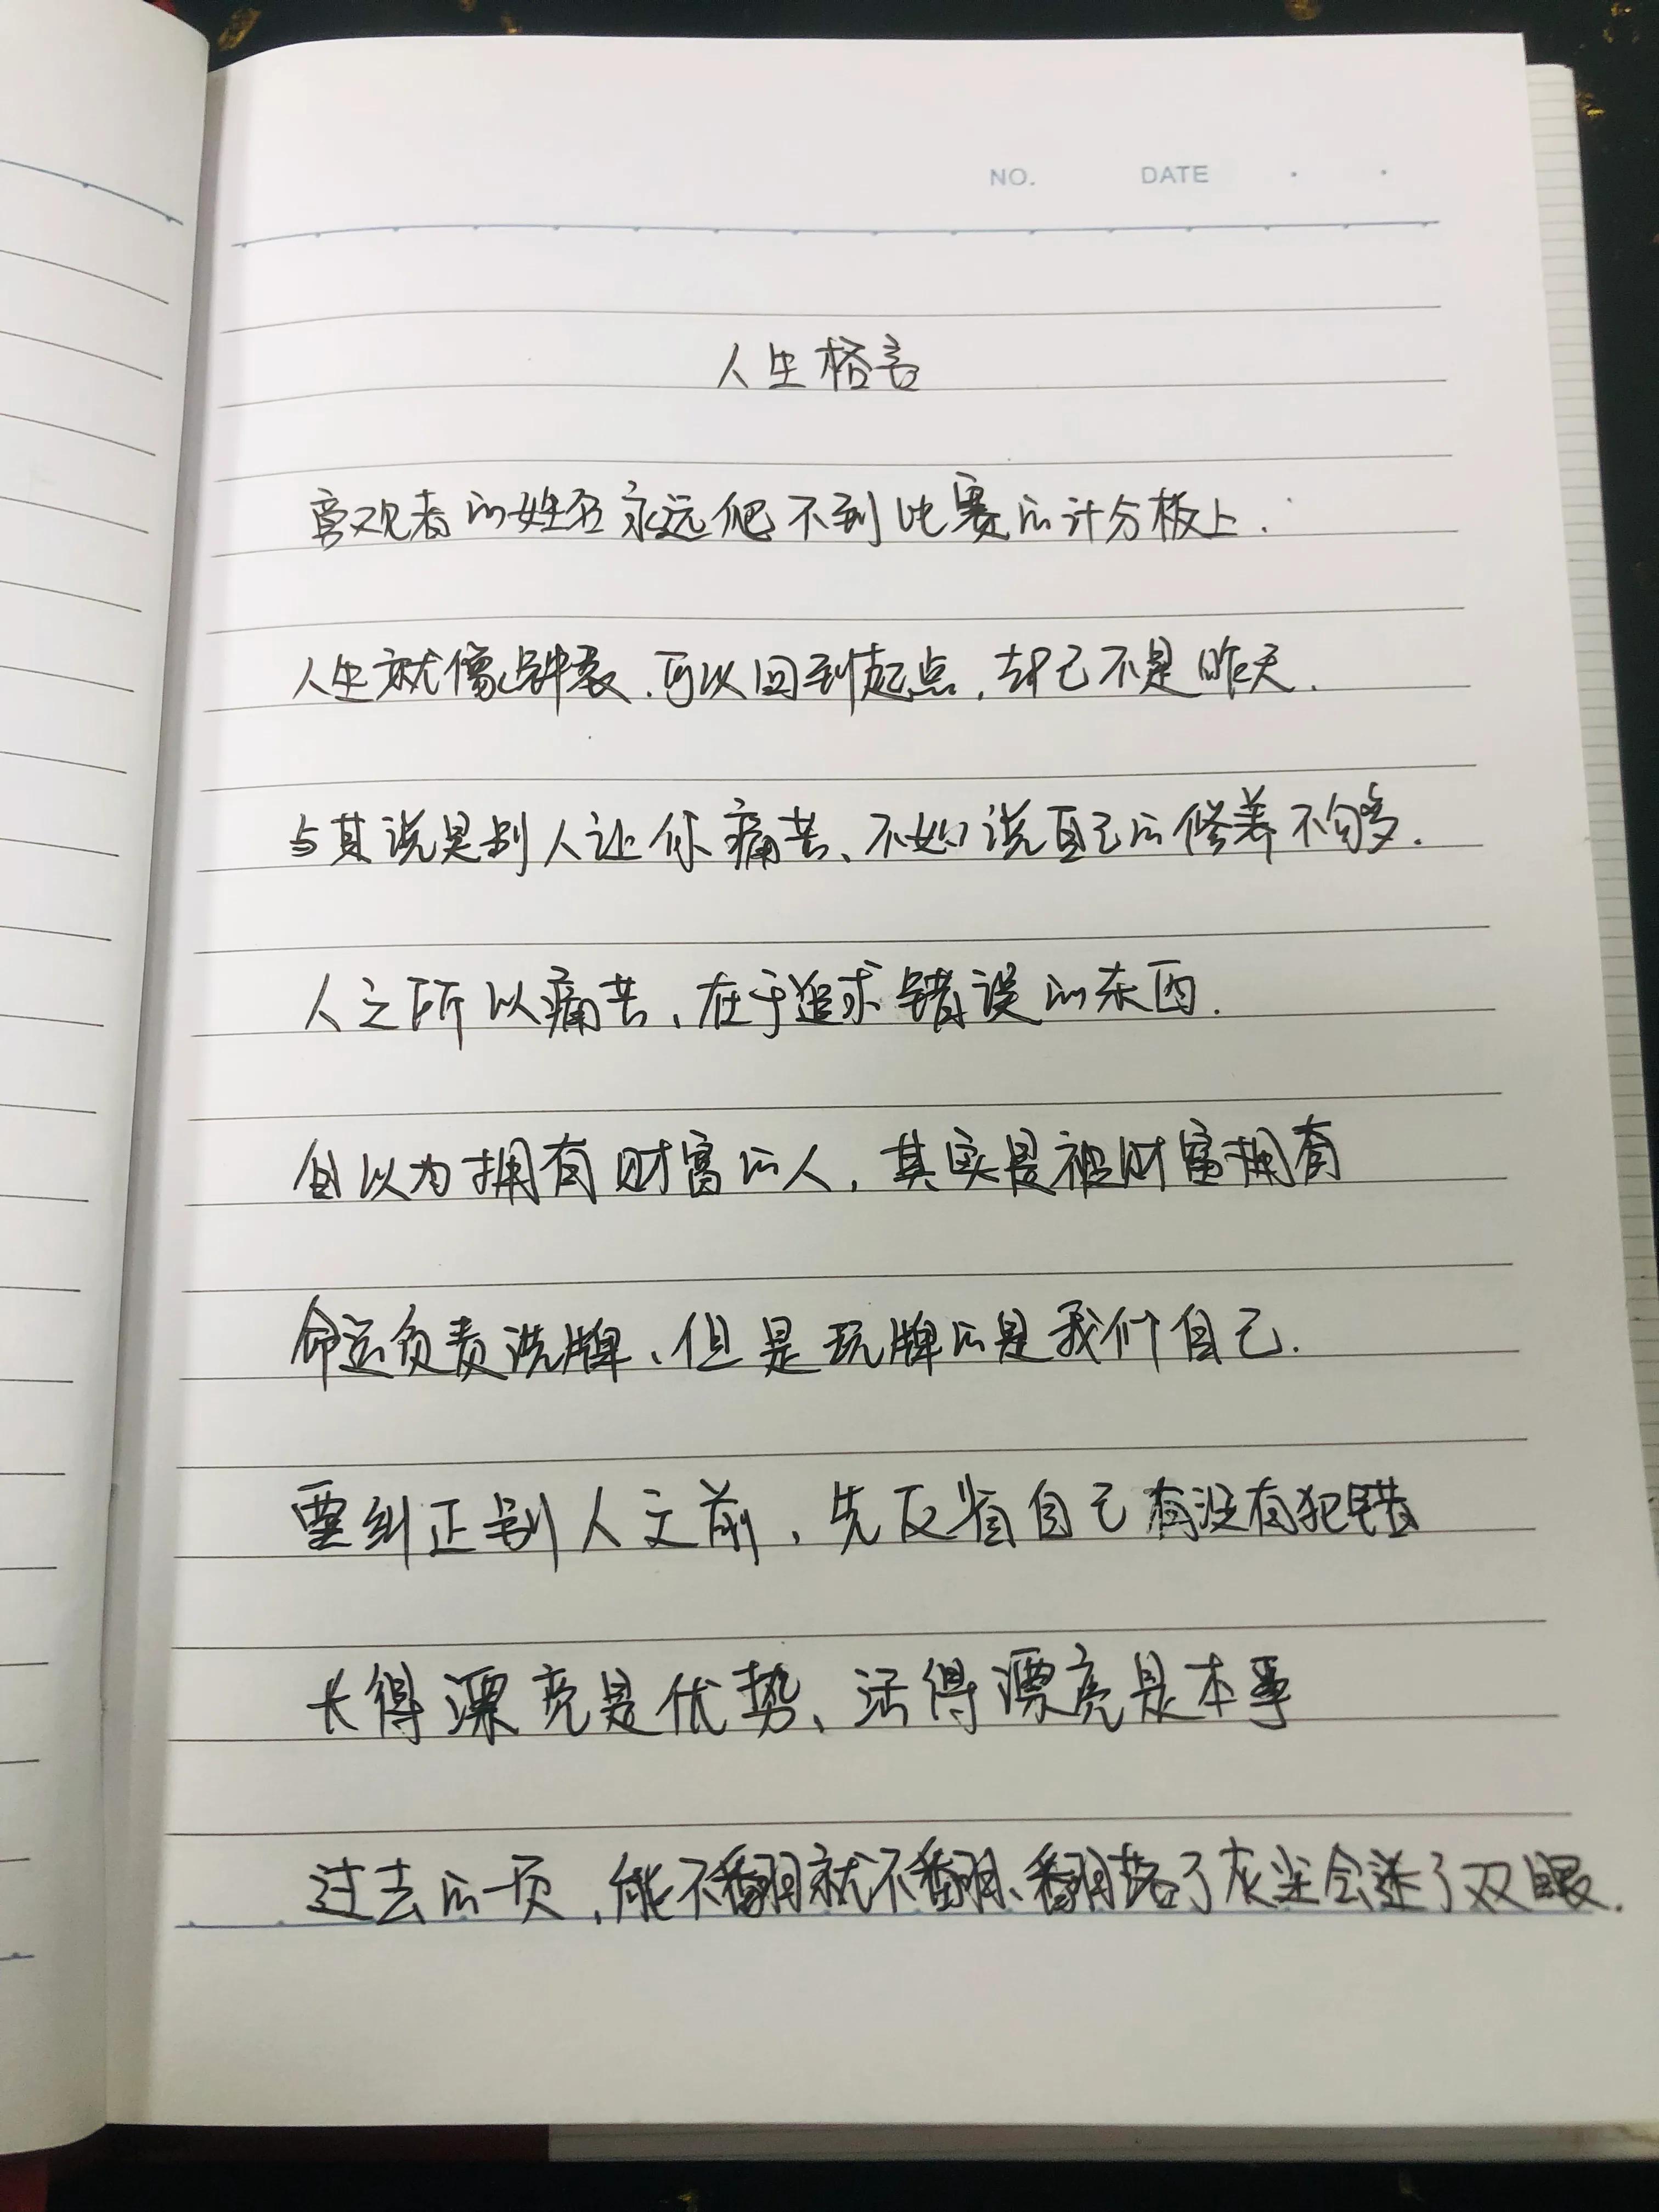 NO. DATE · ·
人生格言
旁观者的姓名永远爬不到比赛的计分板上.
人生就像钟表,可以回到起点,却已不是昨天.
与其说是别人让你痛苦、不如说自己的修养不够.
人之所以痛苦、在于追求错误的东西.
自以为拥有财富的人,其实是被财富拥有
命运负责洗牌、但是玩牌的是我们自己.
要纠正别人之前,先反省自己有没有犯错
长得漂亮是优势、活得漂亮是本事
过去的一页,能不翻就不翻、翻落了灰尘会迷了双眼.